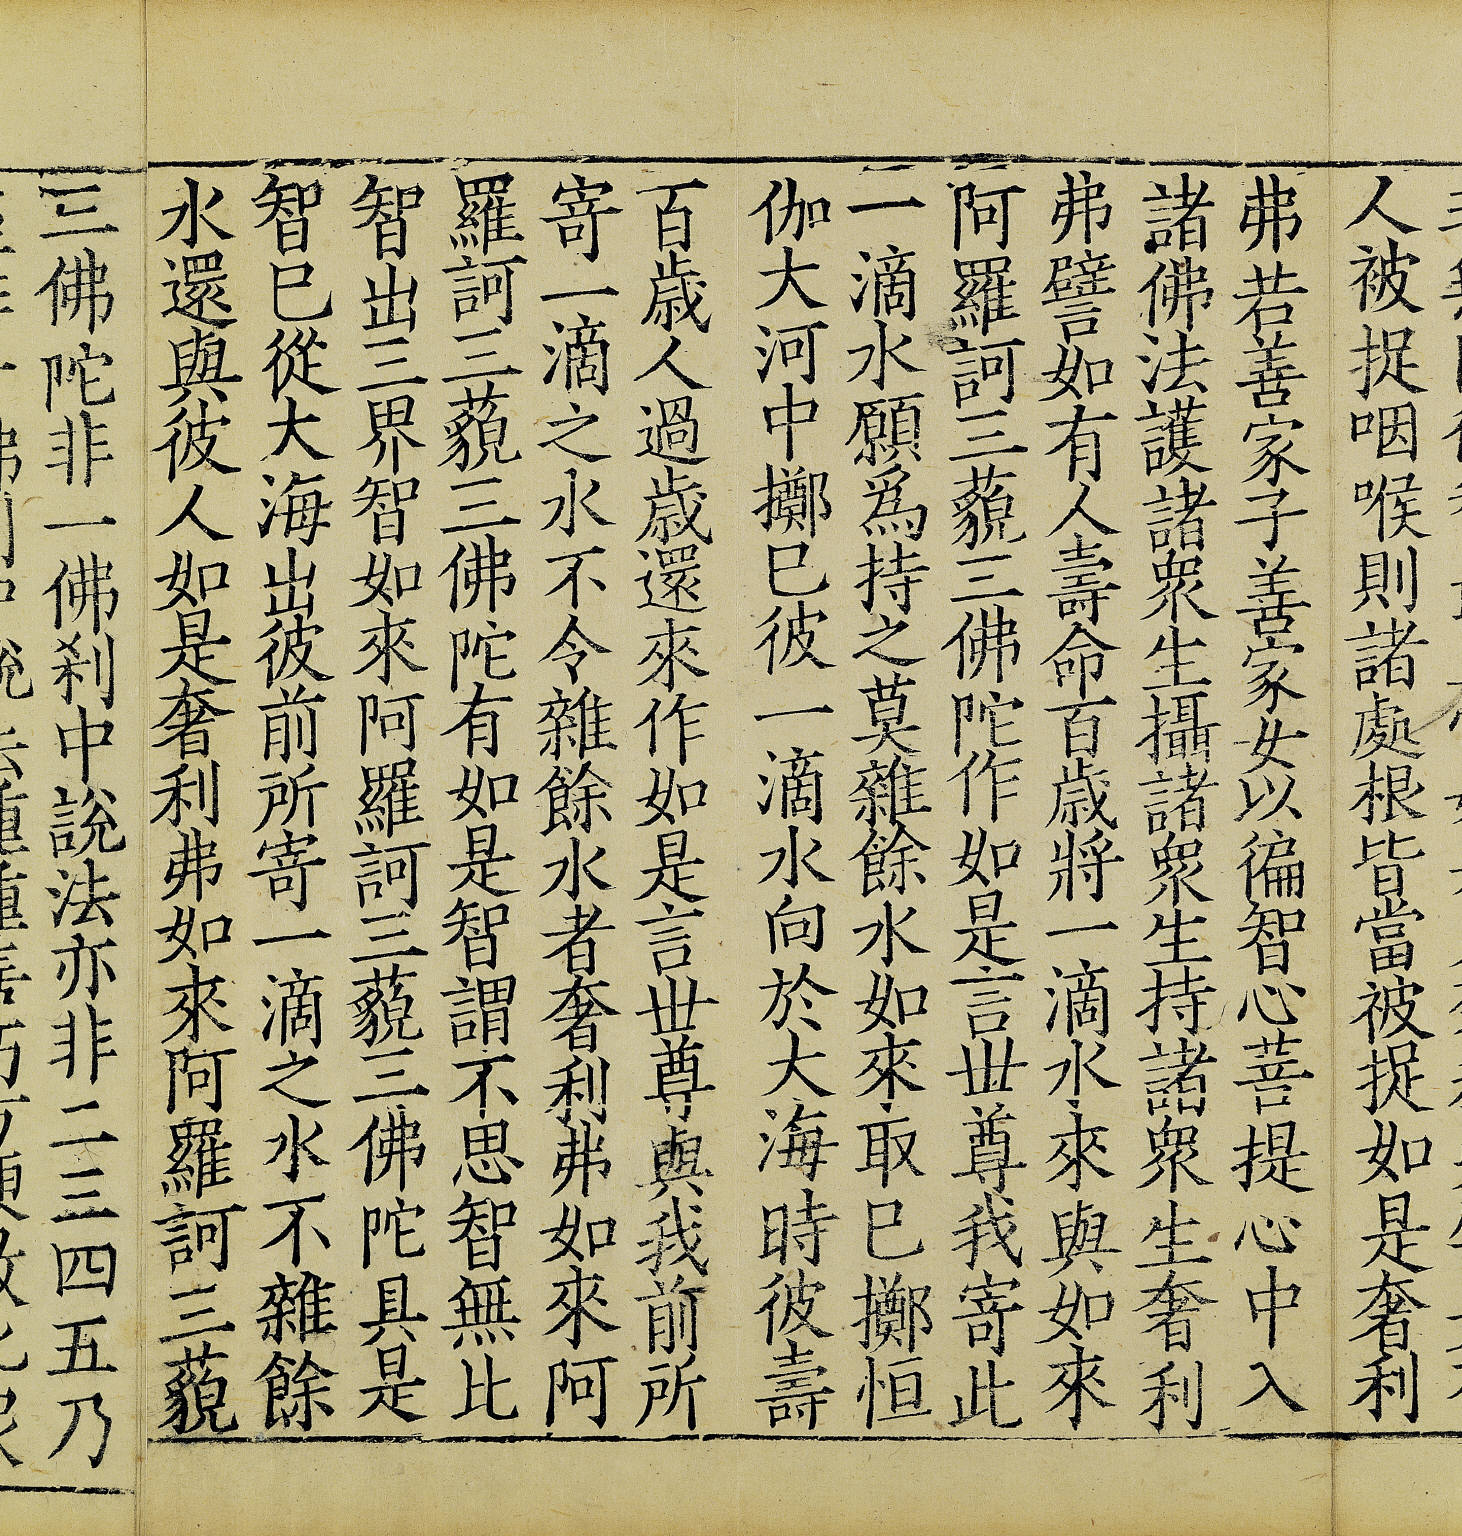 人被捉咽喉則諸處根皆當被捉如是奢利
弗若善家子善家女以徧智心菩提心中入
諸佛法護諸衆生攝諸衆生持諸衆生奢利
弗譬如有人壽命百歳將一滴水來與如來
阿羅訶三藐三佛陀作如是言世尊我寄此
一滴水願爲持之莫雜餘水如來取已擲恒
伽大河中擲已彼一滴水向於大海時彼壽
百歳人過歳還來作如是言世尊與我前所
寄一滴之水不令雜餘水者奢利弗如來阿
羅訶三藐三佛陀有如是智謂不思智無比
智出三界智如來阿羅訶三藐三佛陀具是
智已從大海出彼前所寄一滴之水不雜餘
水還與彼人如是奢利弗如來阿羅訶三藐
三佛陀非一佛刹中說法亦非二三四五乃